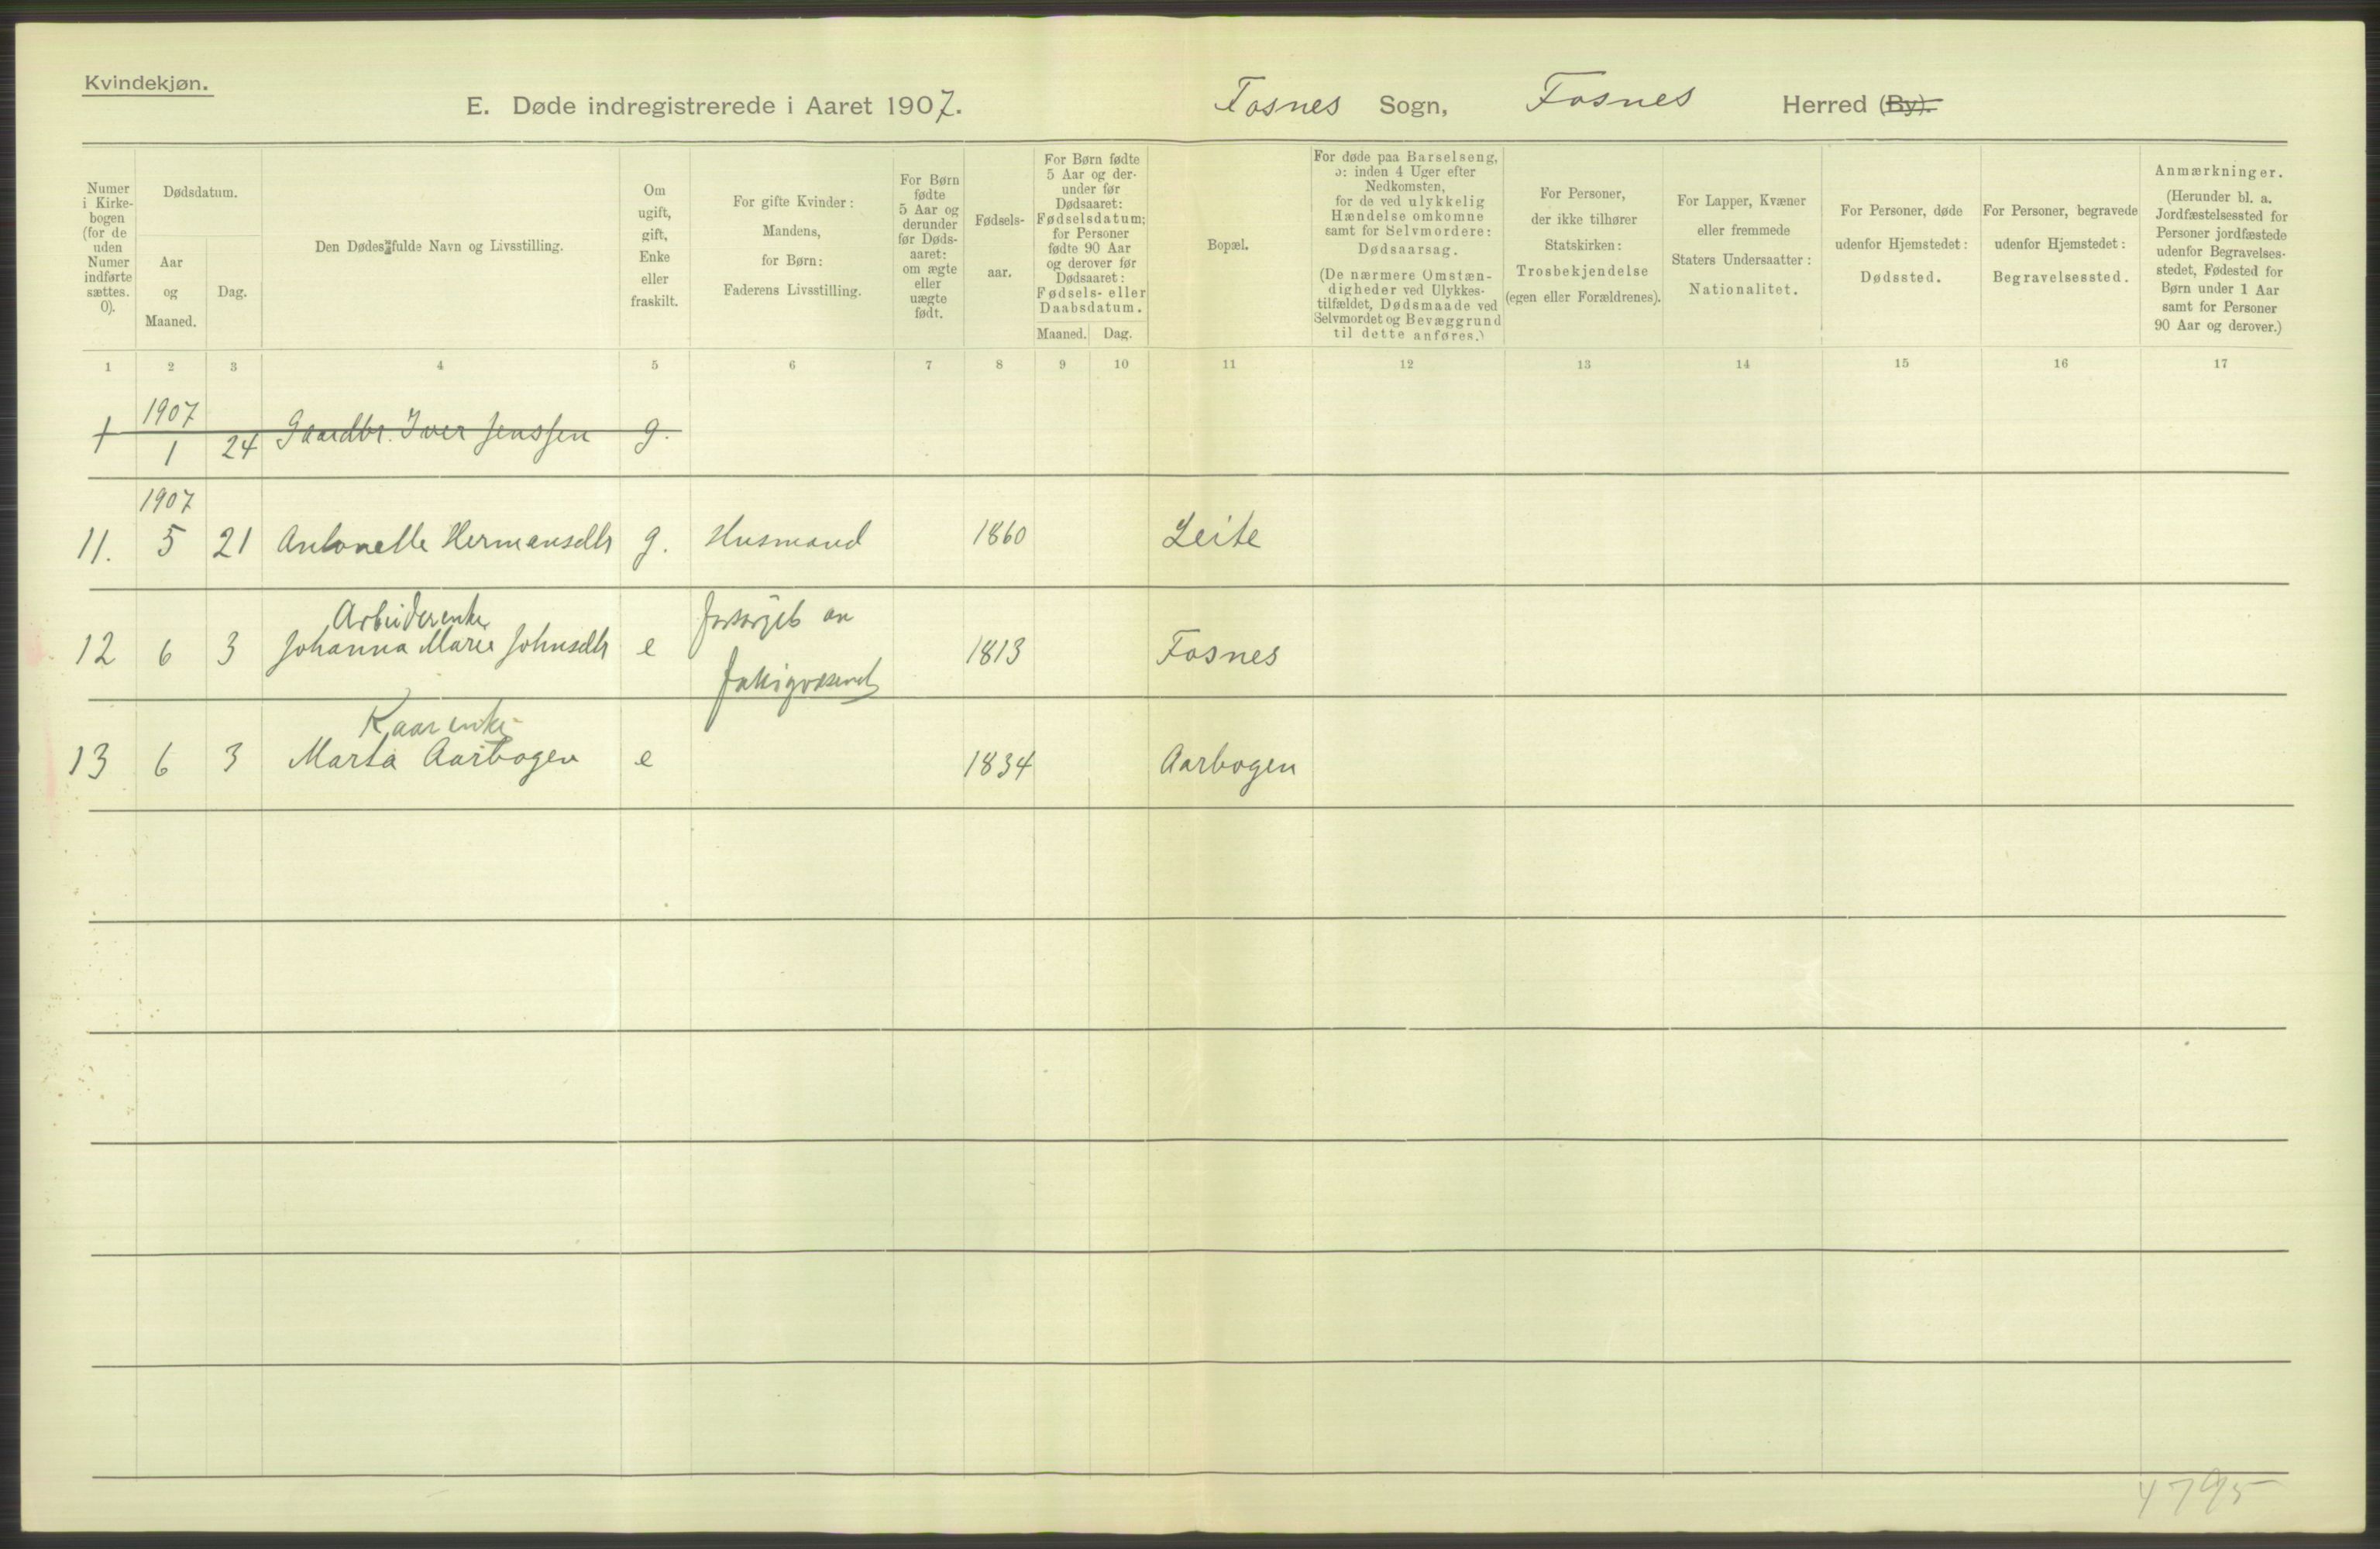 Kvindekjøn.
E. Døde indregistrerede i Aaret 1907. Fosnes Sogn, Fosnes Herred (By).
Numer i Kirke-bogen (for de uden Numer indførte sættes. 0).
Dødsdatum.
Aar og Maaned.
Dag.
Den Dødes fulde Navn og Livsstilling.
Om ugift, gift, Enke eller fraskilt.
For gifte Kvinder: Mandens, for Børn: Faderens Livsstilling.
For Børn fødte 5 Aar og derunder før Døds-aaret: om ægte eller uægte født.
Fødsels-aar.
For Børn fødte 5 Aar og der-under før Dødsaaret: Fødselsdatum; for Personer fødte 90 Aar og derover før Dødsaaret: Fødsels- eller Daabsdatum.
Maaned. Dag.
Bopæl.
For døde paa Barselseng, ɔ: inden 4 Uger efter Nedkomsten, for de ved ulykkelig Hændelse omkomne samt for Selvmordere: Dødsaarsag. (De nærmere Omstæn-digheder ved Ulykkes-tilfældet, Dødsmaade ved Selvmordet og Bevæggrund til dette anføres.)
For Personer, der ikke tilhører Statskirken: Trosbekjendelse (egen eller Forældrenes).
For Lapper, Kvæner eller fremmede Staters Undersaatter: Nationalitet.
For Personer, døde udenfor Hjemstedet: Dødssted.
For Personer, begravede udenfor Hjemstedet: Begravelsessted.
Anmærkninger. (Herunder bl. a. Jordfæstelsessted for Personer jordfæstede udenfor Begravelses-stedet, Fødested for Børn under 1 Aar samt for Personer 90 Aar og derover.)
1 2 3 4 5 6 7 8 9 10 11 12 13 14 15 16 17
1907
1 1 24 Gaardbr. Iver Jenssen g.
1907
11. 5 21 Antonette Hermansdtr g. Husmand 1860 Leite
Arbeiderenke forsørget av
12 6 3 Johanna Marie Johnsdtr e 1813 Fosnes
Fattigvæsenet
Kaarenke
13 6 3 Marta Aarbogen e 1834 Aarbogen
4795